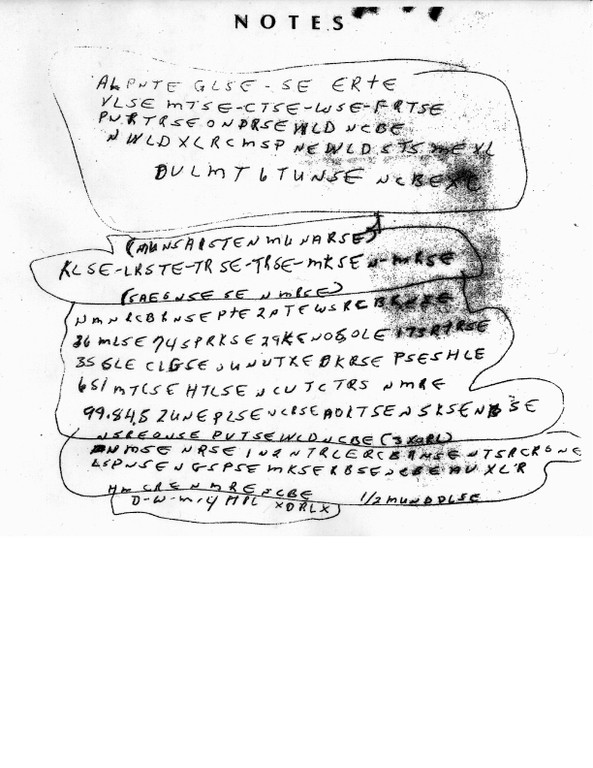 NOTES
ALPNTE GLSE-SE ERTE
VLSE MTSE-CTSE-WSE-FRTSE
PNRTRSEONDRSEWLD NCBE
NWLDXLRCMSP NEWLDSTSMEXL
DULMT6TUNSE NCBEXL
(MUNSAISTENMUNARSE)
KLSE-LRSTE-TRSE-TRSE-MKSEN-MRSE
(SAEGNSESE NMRSE)
NMNRCBRNSEPTE2PTEWSRCBRNSE
36MLSE 74SPRKSE29KENOSOLE 173RTRSE
35 GLE CLGSE UNUTXE DKRSE PSESHLE
651MTCSE HTLSE NCUTCTRS NMRE
99.84.5 2UNEPLSE NCRSEAOLTSENSKSEN SE
NSREONSE PUTSEWLDNCBE (3XORL)
NMSE NRSE IN2NTRLERCBRNSE NTSRCRONE
LSPNSENGSPSE MKSERBSE NCBE AUXLR
HM CRE NMRE NCBE 1/2MUNDDLSE
D-W-M-4 MPL XDRLX